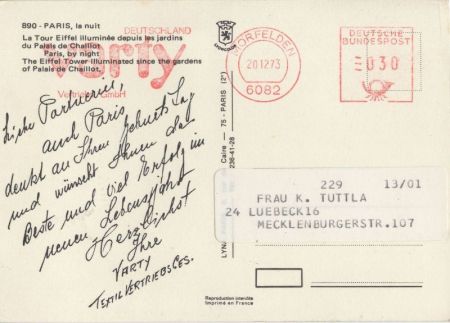 890 - PARIS, la nuit
La Tour Eiffel illuminée depuis les jardins
du Palais de Chaillot
Paris, by night
The Eiffel Tower illuminated since the gardens
of Palais de Chaillot.
DEUTSCHLAND
Varty
Vertriebs GmbH
MÖRFELDEN
20.12.73
6082
DEUTSCHE
BUNDESPOST
030
Liebe Partnerin,
auch Paris
denkt an Ihren Geburtstag
und wünscht Ihnen das
Beste und viel Erfolg im
neuen Lebensjahr
Herzlichst
Ihre
VARTY
TEXTILVERTRIEBSGES.
75 - PARIS (2e)
236-41-28
229 13/01
FRAU K. TUTTLA
24 LUEBECK16
MECKLENBURGERSTR.107
Reproduction interdite
Imprimé en France